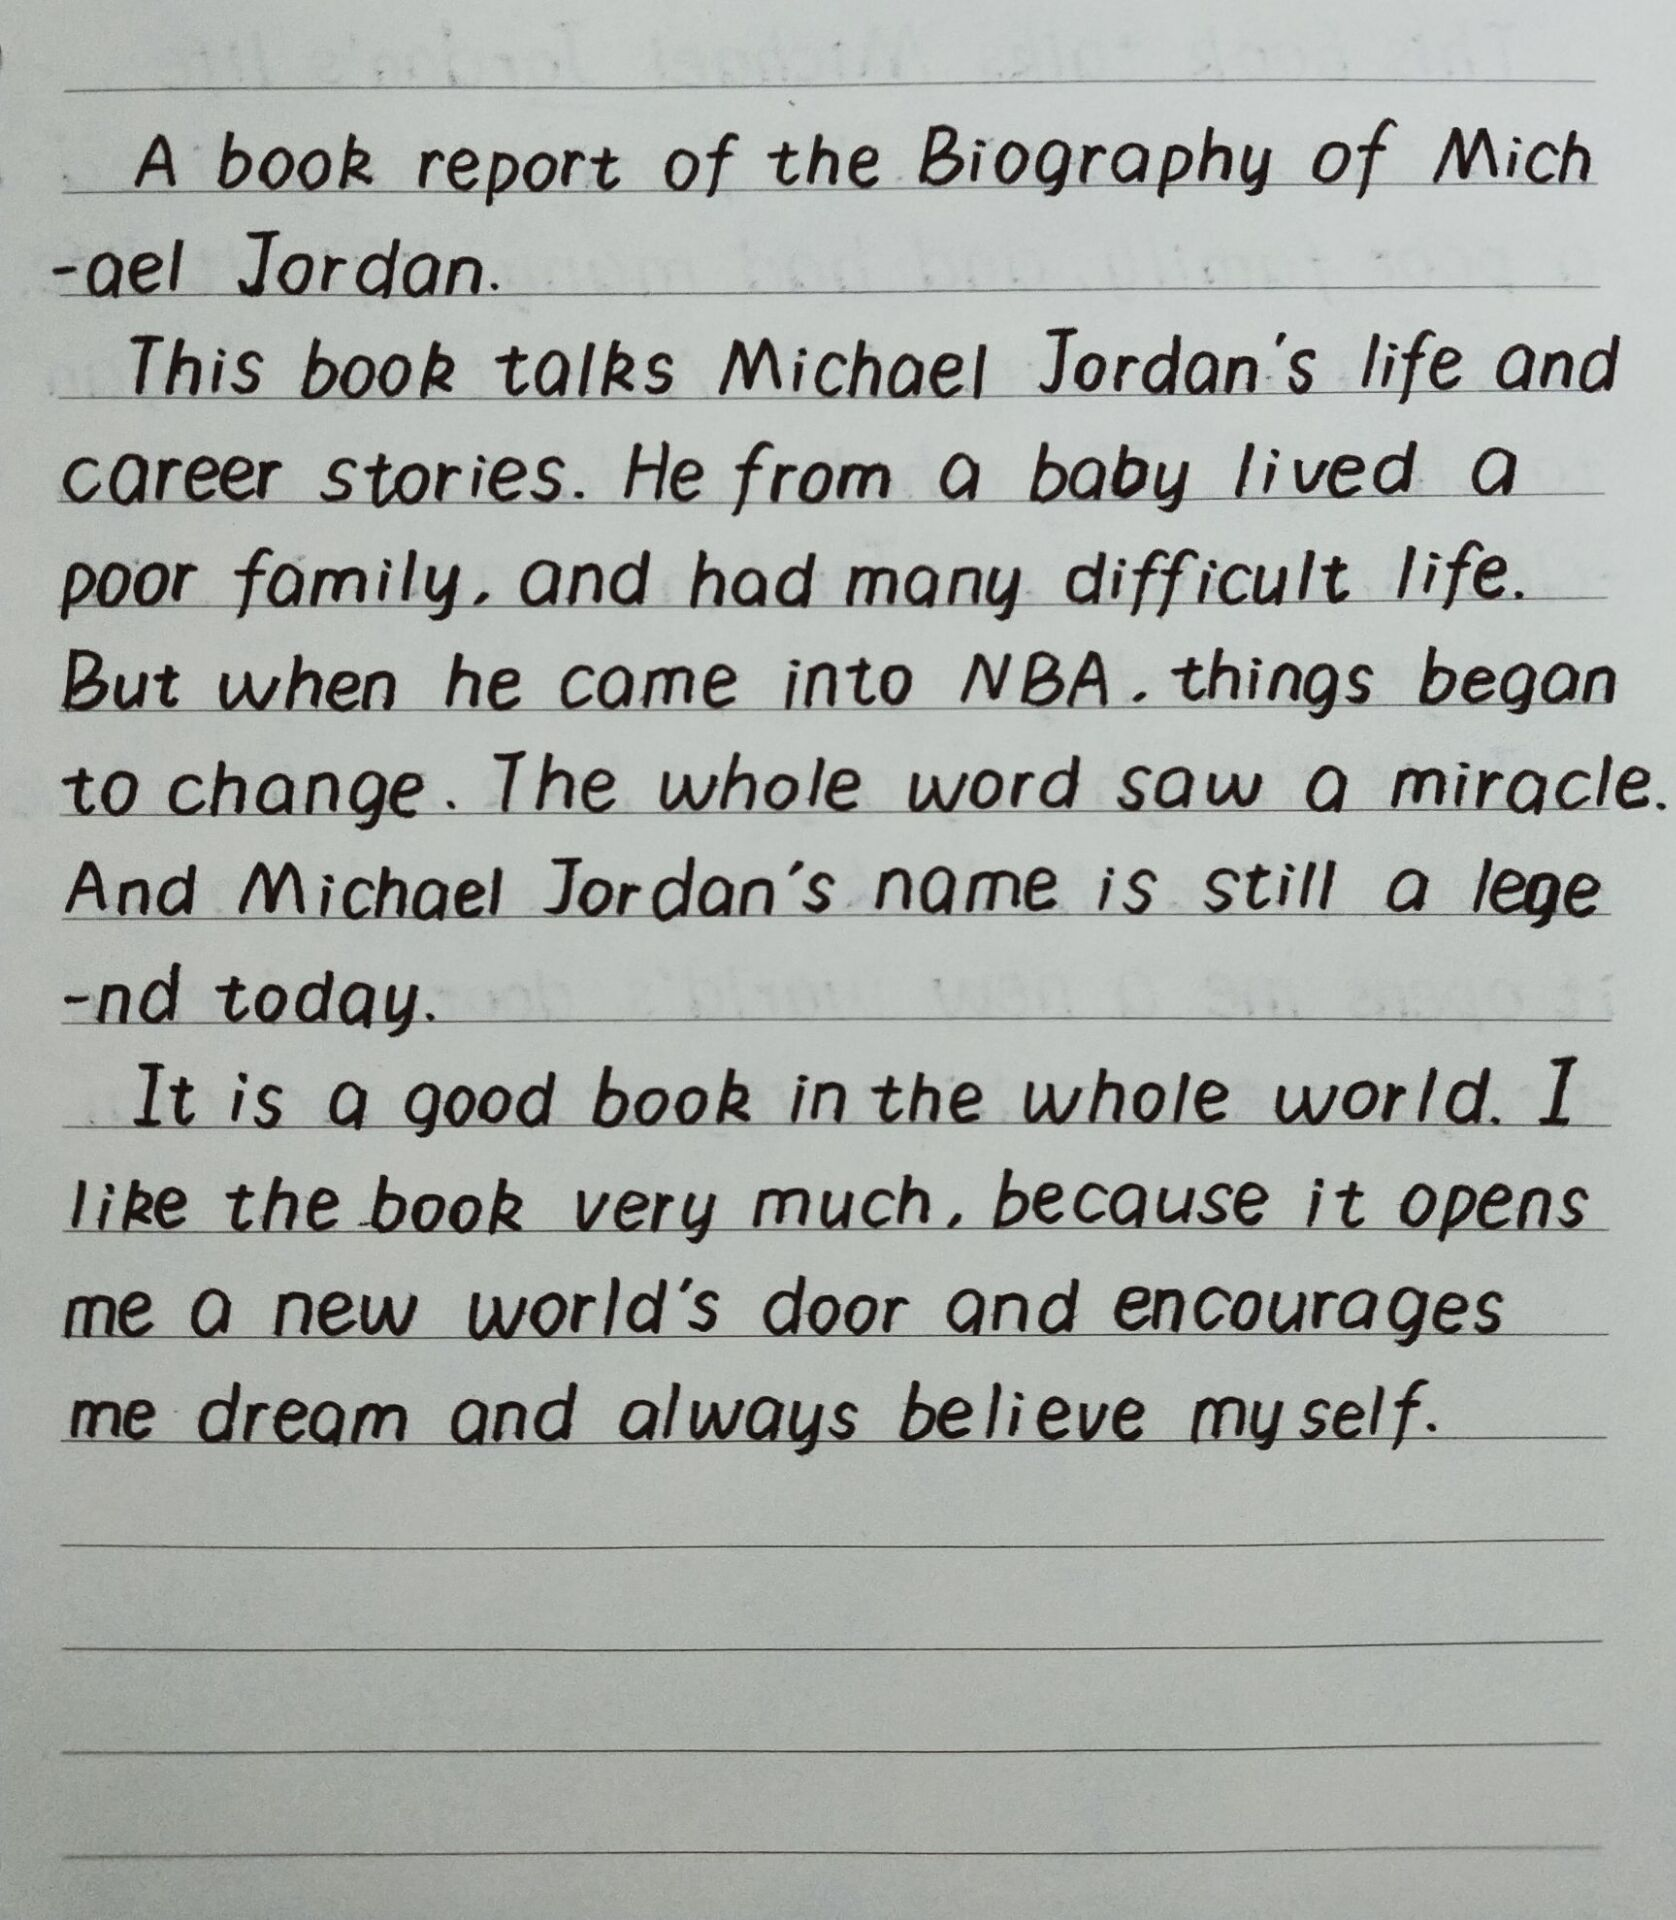 A book report of the Biography of Mich
-ael Jordan.
This book talks Michael Jordan's life and
career stories. He from a baby lived a
poor family, and had many difficult life.
But when he came into NBA, things began
to change. The whole word saw a miracle.
And Michael Jordan's name is still a lege
-nd today.
It is a good book in the whole world. I
like the book very much, because it opens
me a new world's door and encourages
me dream and always believe myself.